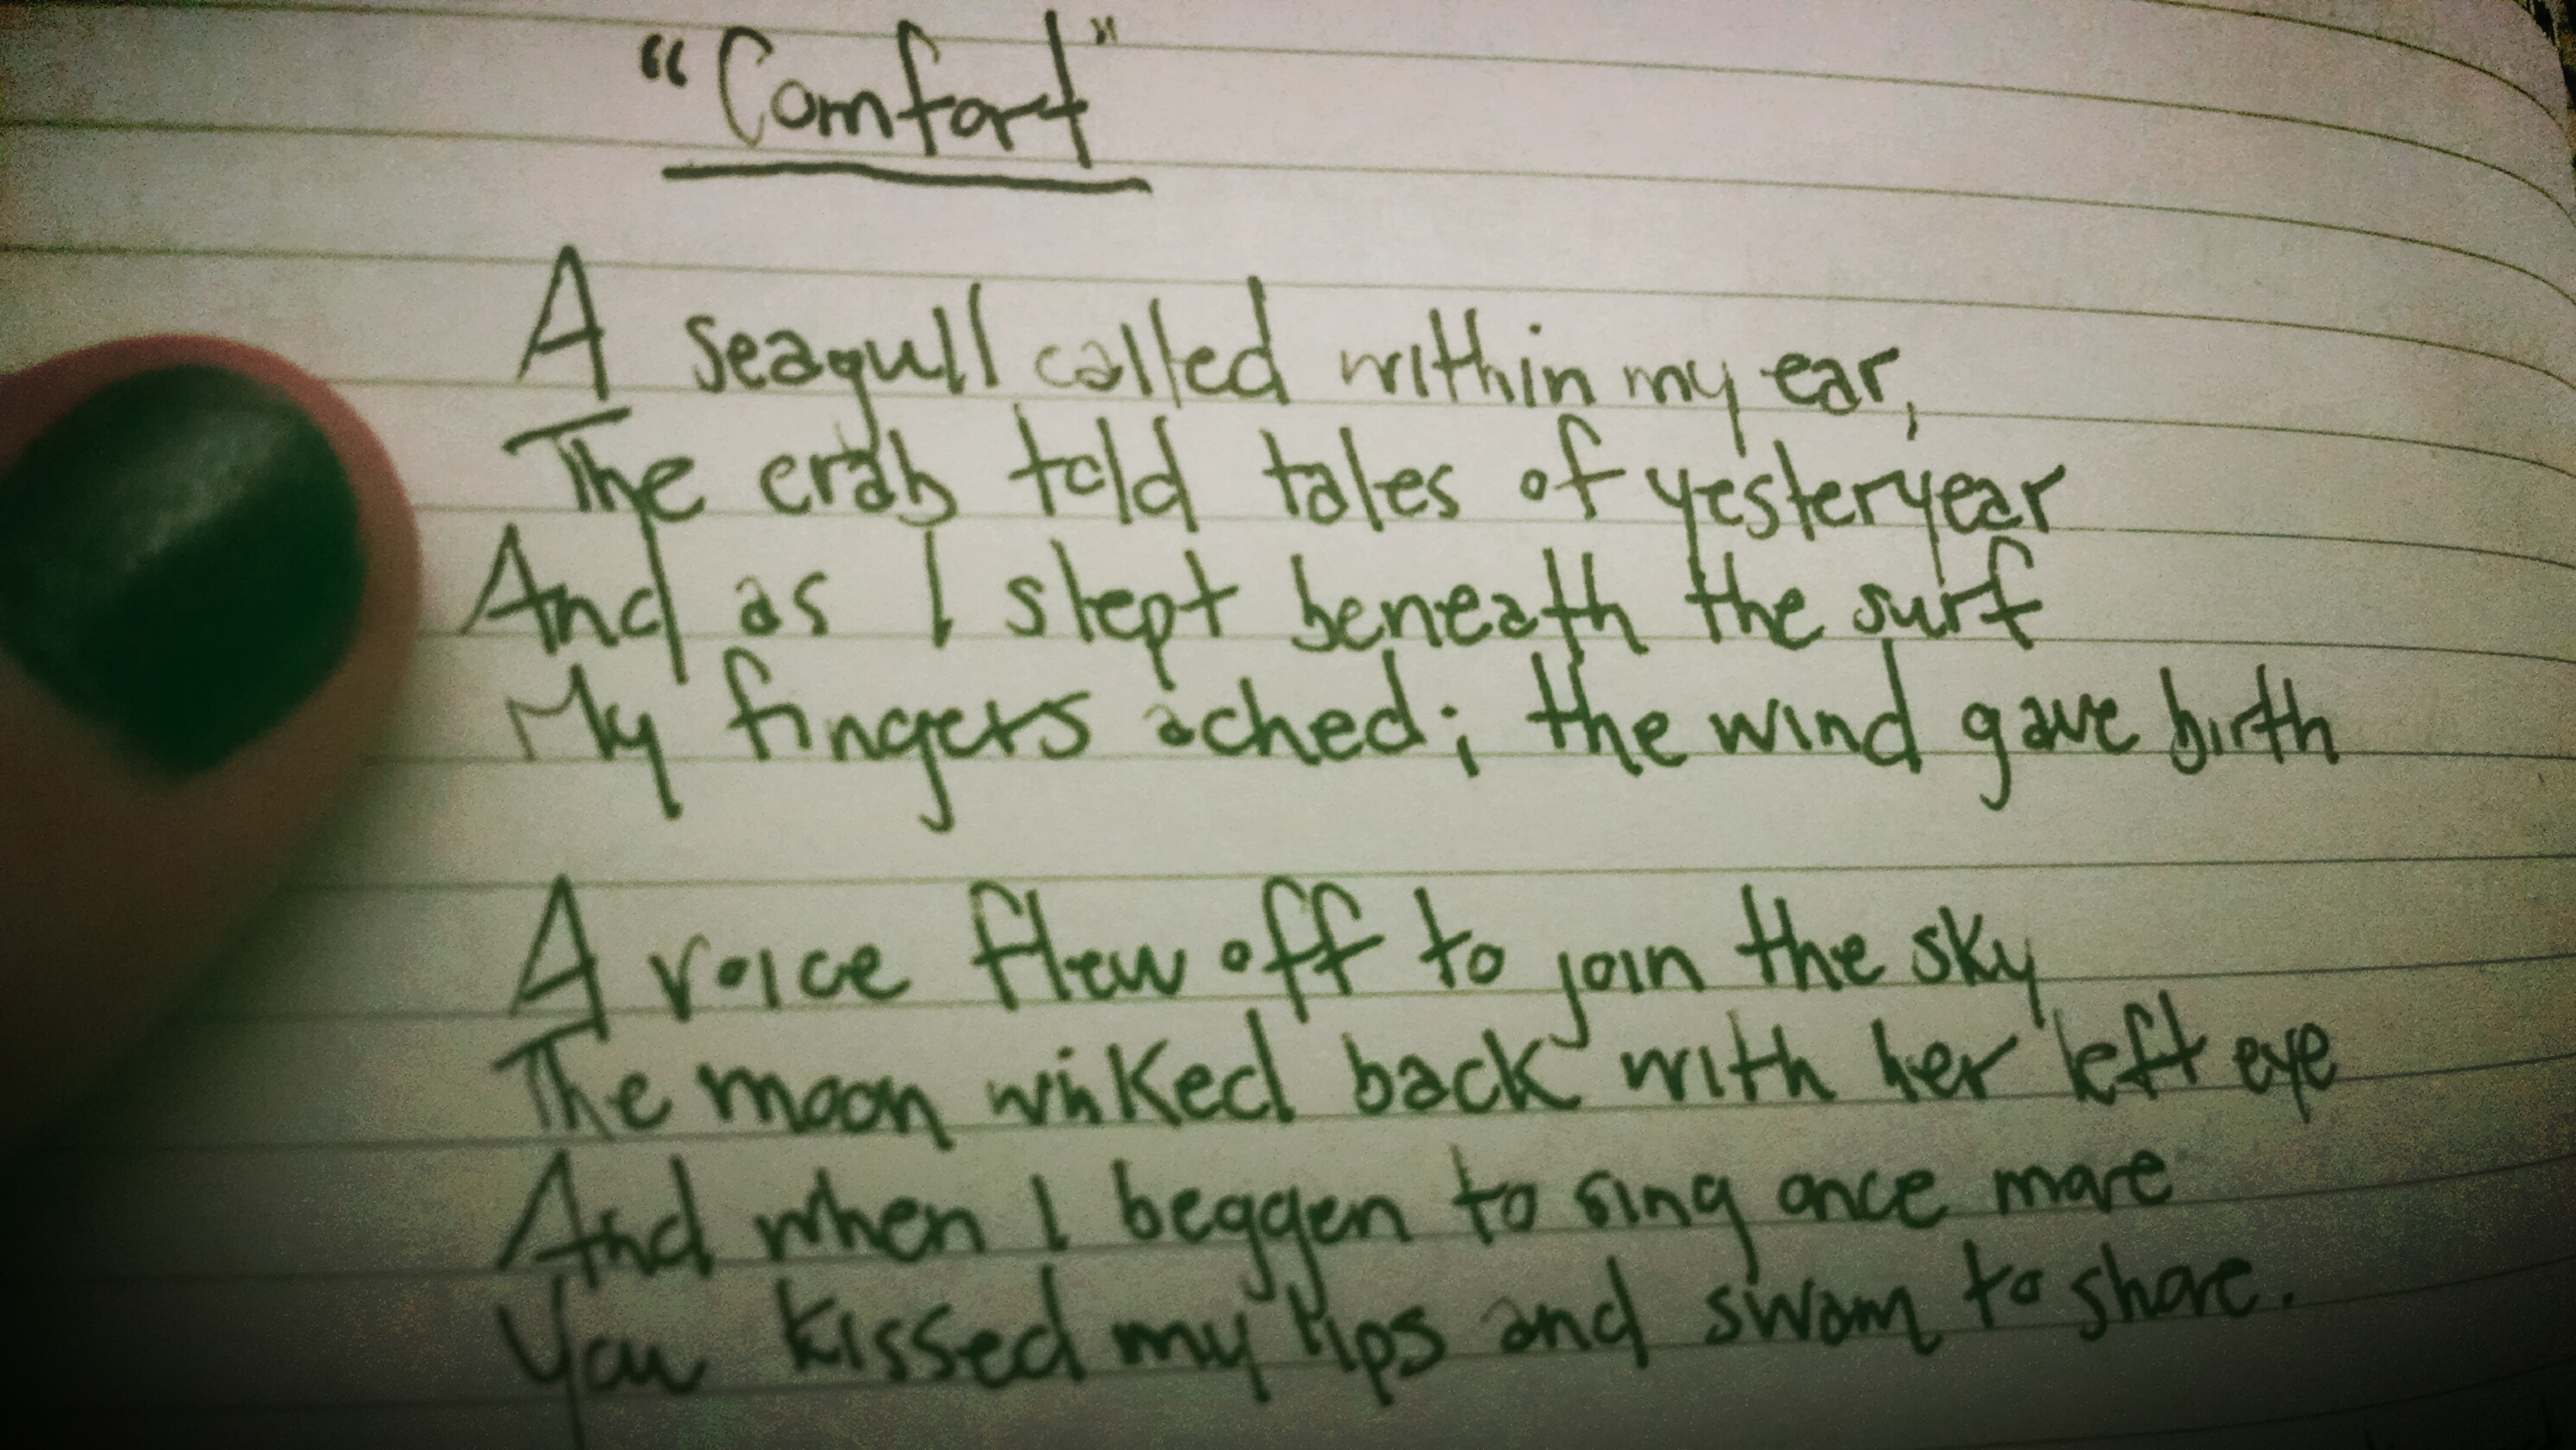 "Comfort"
A seagull called within my ear,
The crab told tales of yesteryear
And as I slept beneath the surf
My fingers ached; the wind gave birth
A voice flew off to join the sky
The moon winked back with her left eye
And when I beggen to sing once more
You kissed my lips and swam to shore.